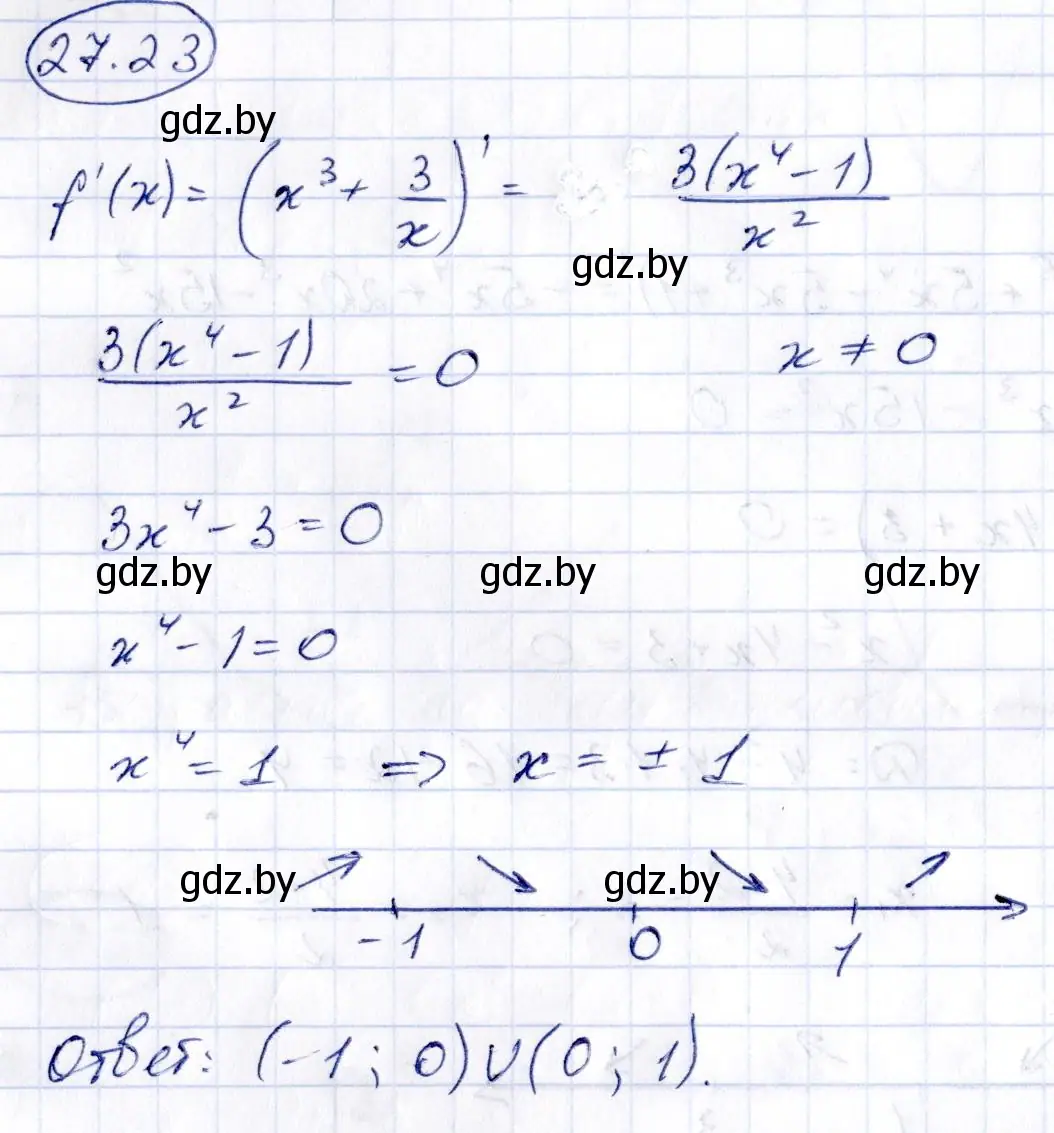 27.23
gdz.by
f'(x) = (x³ + 3/x)' = 3(x⁴ - 1)/x²
gdz.by
3(x⁴ - 1)/x² = 0 x ≠ 0
3x⁴ - 3 = 0
gdz.by gdz.by gdz.by
x⁴ - 1 = 0
x⁴ = 1 => x = ± 1
gdz.by gdz.by
-1 0 1
Ответ: (-1; 0)∪(0; 1).